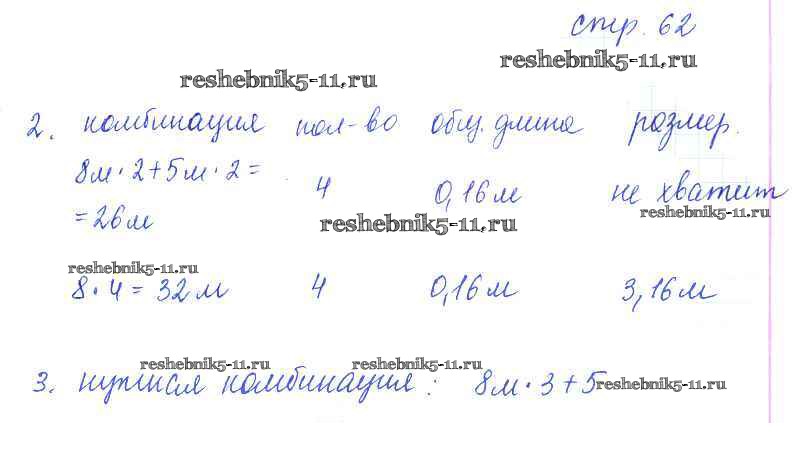 стр. 62
reshebnik5-11.ru
reshebnik5-11.ru
2. комбинация кол-во общ. длина размер.
8м · 2 + 5м · 2 =
4 0,16м не хватит
= 26м
reshebnik5-11.ru
reshebnik5-11.ru
reshebnik5-11.ru
8 · 4 = 32м 4 0,16м 3,16м
reshebnik5-11.ru reshebnik5-11.ru
3. комбинация: 8м · 3 + 5
reshebnik5-11.ru